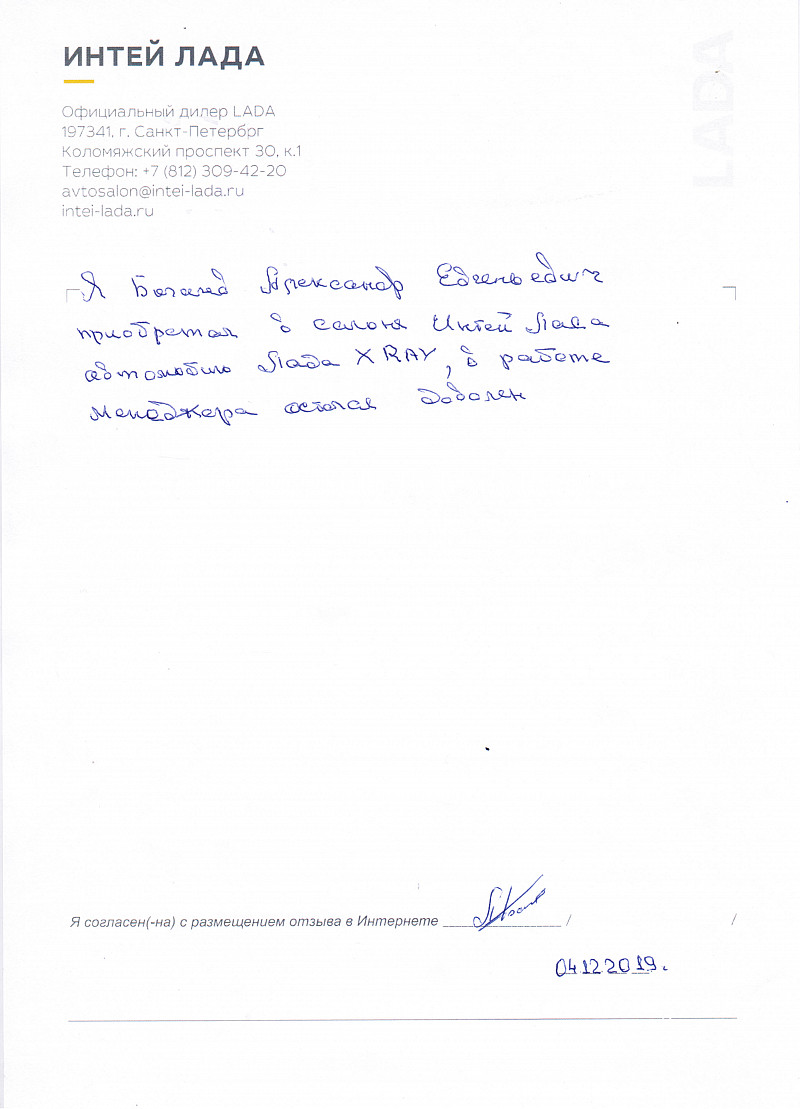 ИНТЕЙ ЛАДА
LADA
Официальный дилер LADA
197341, г. Санкт-Петербрг
Коломяжский проспект 30, к.1
Телефон: +7 (812) 309-42-20
avtosalon@intei-lada.ru
intei-lada.ru
Я Александр Евгеньевич
приобретал в салоне Интей Лада
автомобиль Лада XRAY, в работе
менеджера остался доволен
Я согласен(-на) с размещением отзыва в Интернете / /
04.12.2019г.